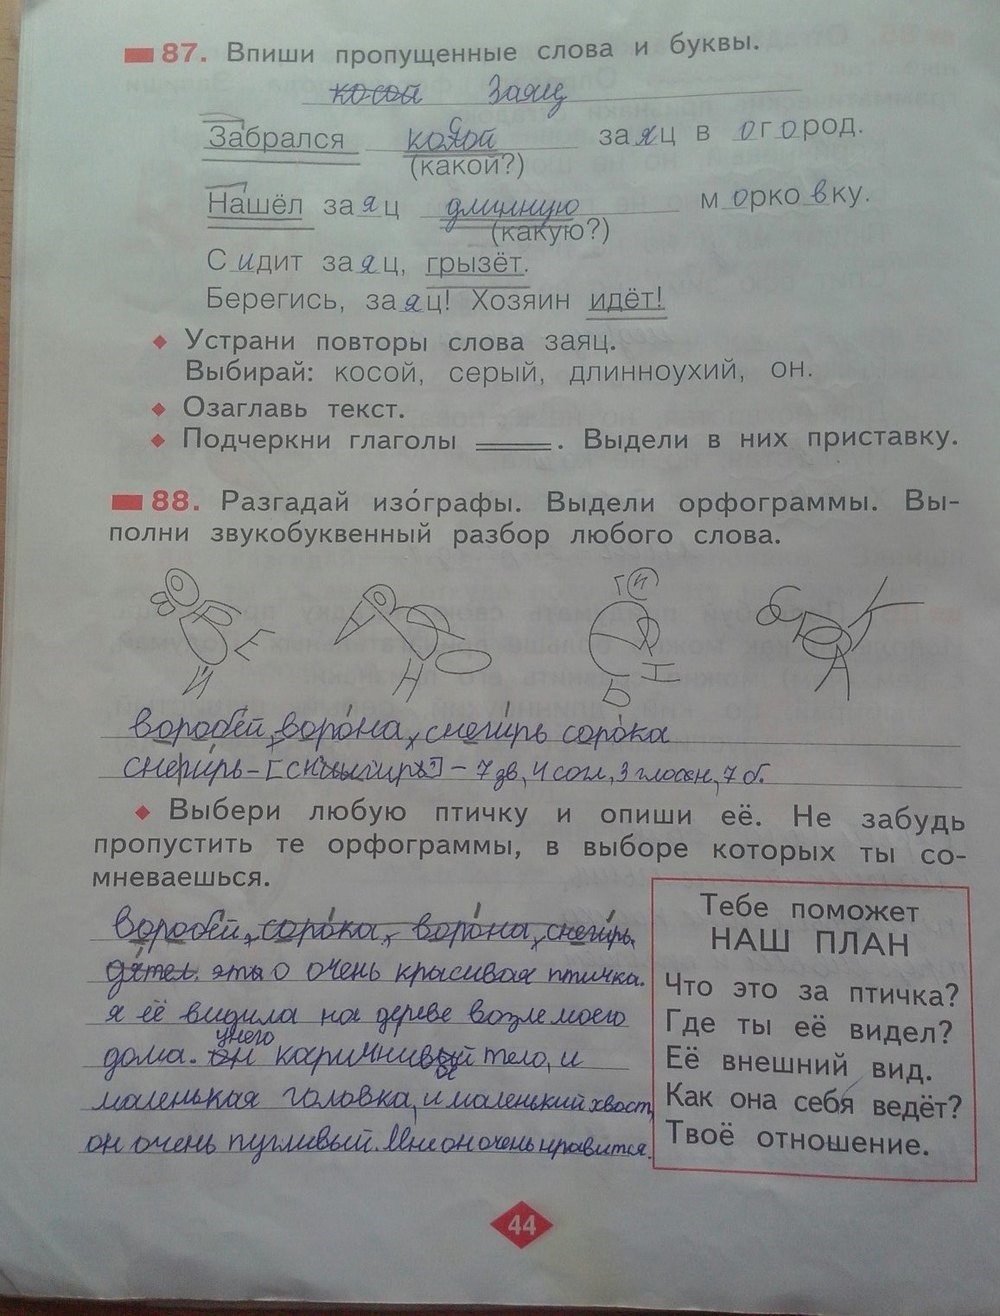 87. Впиши пропущенные слова и буквы.
косой Заяц
Забрался косой заяц в огород.
(какой?)
Нашёл заяц длинную морковку.
(какую?)
Сидит заяц, грызёт.
Берегись, заяц! Хозяин идёт!
Устрани повторы слова заяц.
Выбирай: косой, серый, длинноухий, он.
Озаглавь текст.
Подчеркни глаголы ═══. Выдели в них приставку.
88. Разгадай изо́графы. Выдели орфограммы. Вы-
полни звукобуквенный разбор любого слова.
воробей, воро́на, снеги́рь соро́ка
снеги́рь - – 7 зв, 4 согл, 3 гласн, 7 б.
Выбери любую птичку и опиши её. Не забудь
пропустить те орфограммы, в выборе которых ты со-
мневаешься.
Тебе поможет
НАШ ПЛАН
Что это за птичка?
Где ты её видел?
Её внешний вид.
Как она себя ведёт?
Твоё отношение.
воробей, соро́ка, воро́на, снеги́рь,
дятел. это очень красивая птичка.
я её видила на дереве возле моего
у него
дома. он каричнивый тело, и
маленькая головка, и маленький хвост,
он очень пугливый. Мне он очень нравится.
44